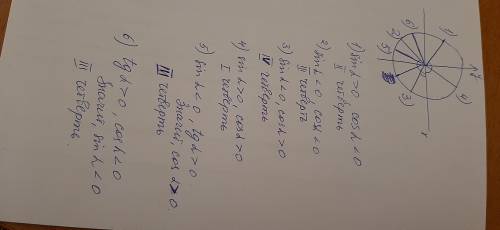 y
1)
6)
2)
5)
3)
4)
x
1) sin α > 0, cos α < 0
II четверть
2) sin α < 0, cos α < 0
III четверть
3) sin α < 0, cos α > 0
IV четверть
4) sin α > 0, cos α > 0
I четверть
5) sin α < 0, tg α > 0
Значит, cos α > 0
III четверть
6) tg α > 0, cos α < 0
Значит, sin α < 0
III четверть.